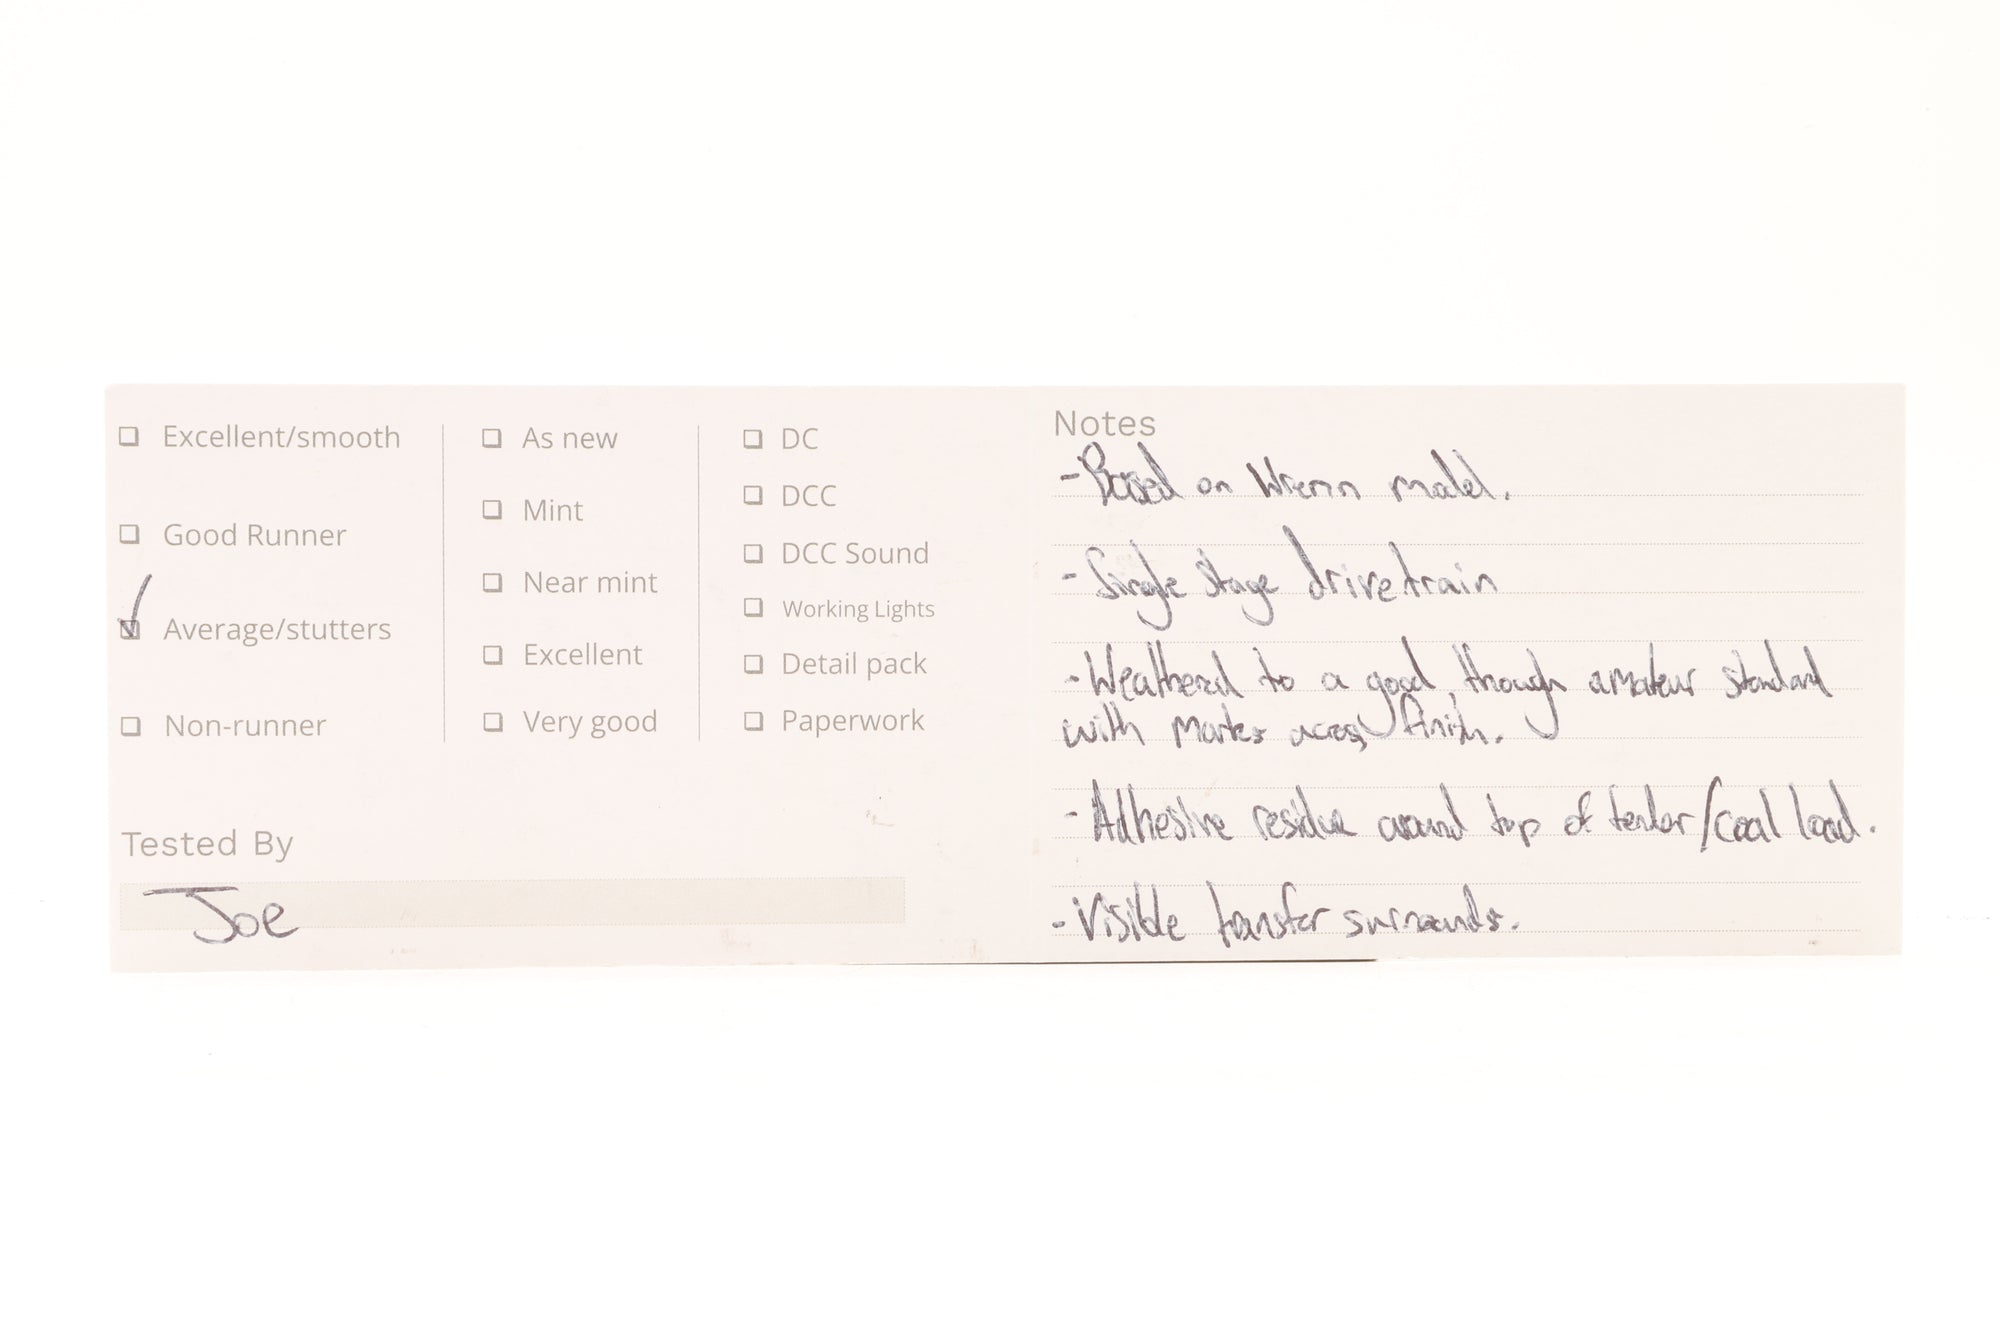 Excellent/smooth
Good Runner
Average/stutters
Non-runner
As new
Mint
Near mint
Excellent
Very good
DC
DCC
DCC Sound
Working Lights
Detail pack
Paperwork
Tested By
Joe
Notes
- Based on Wrenn model.
- Single stage drivetrain
- Weathered to a good, though amateur standard
with marks across finish.
- Adhesive residue around top of tender/coal load.
- Visible transfer surrounds.